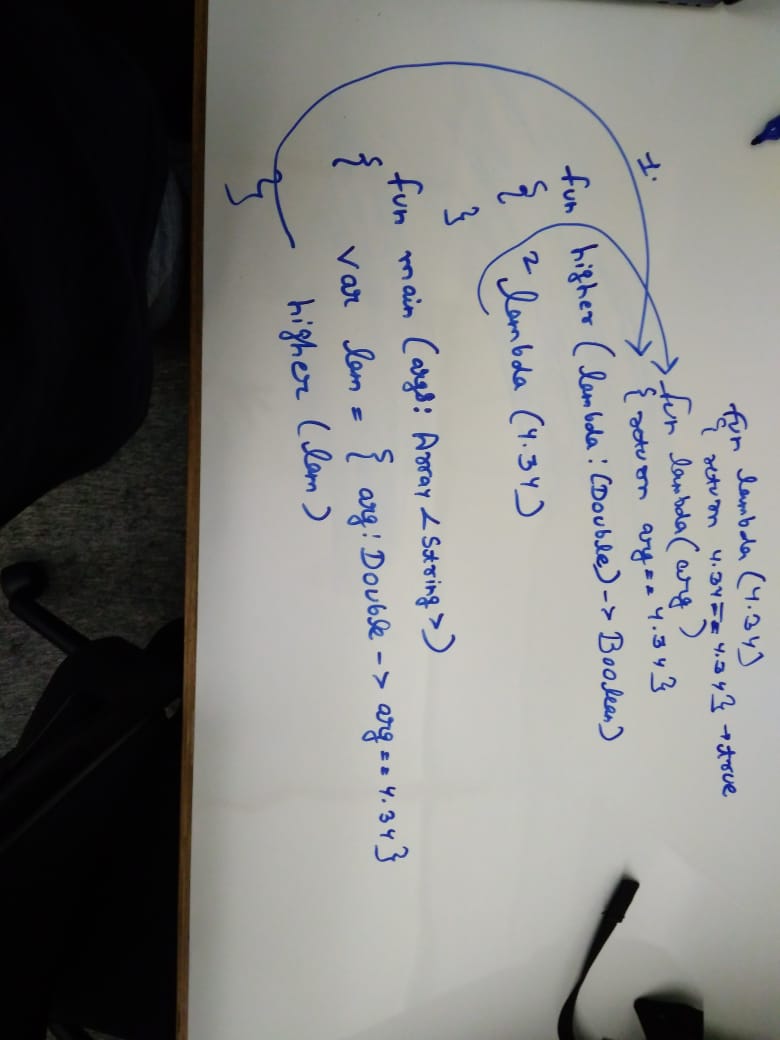 fun lambda (4.34)
{ return 4.34 == 4.34} → true
fun lambda (arg)
{ return arg == 4.34}
1.
fun higher (lambda: (Double) -> Boolean)
{ 2 lambda (4.34)
}
fun main (args: Array <String>)
{ var lam = { arg: Double -> arg == 4.34}
higher (lam)
}